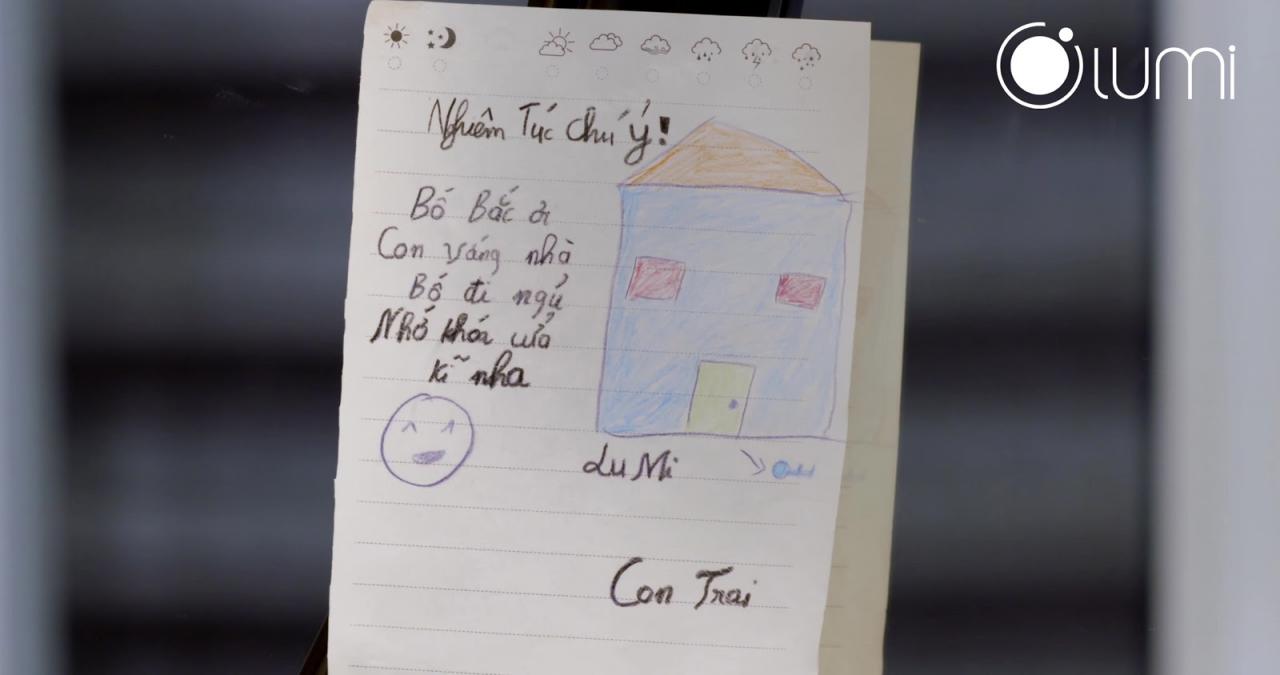 lumi
Nghiêm Túc Chú ý!
Bố Bắc ơi
Con vắng nhà
Bố đi ngủ
Nhớ khóa cửa
kĩ nha
LuMi
Con Trai